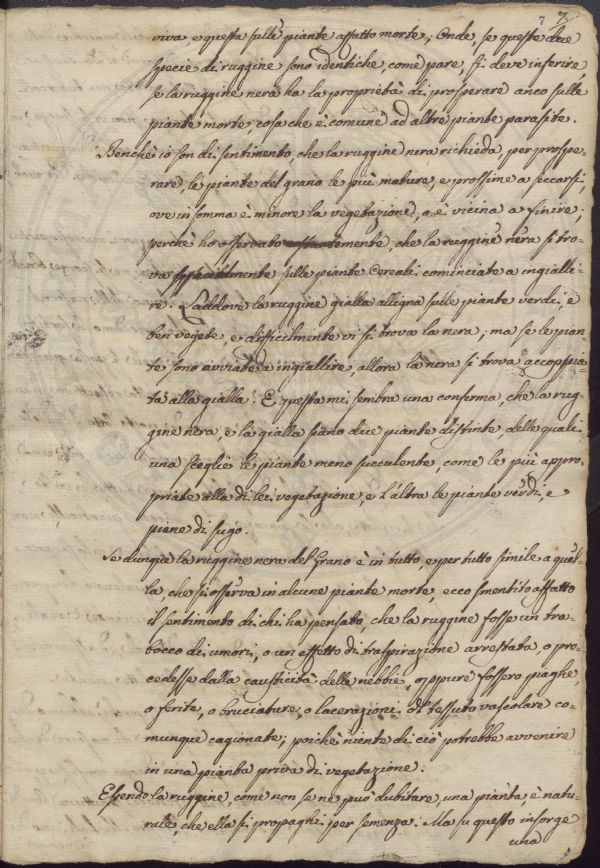 7 7
viva, e questa sulle piante affatto morte; Onde, se queste due
specie di ruggine sono identiche, come pare, si deve inferire,
se la ruggine nera ha la proprietà di prosperare anco sulle
piante morte, cosa che è comune ad altre piante parasite.
Benchè io son di sentimento, che la ruggine nera richieda, per prospe-
rare, le piante del grano le più mature, e prossime a seccarsi,
ove in somma è minore la vegetazione, o è vicina a finire;
perchè ho osservato, che la ruggine nera si tro-
va sulle piante Cereali cominciate a ingialli-
re: Laddove la ruggine gialla alligna sulle piante verdi, e
ben vegete, e difficilmente vi si trova la nera; ma se le pian-
te sono avviate a ingiallire, allora la nera si trova accoppia-
ta alla gialla. E questa mi sembra una conferma, che la rug-
gine nera, e la gialla siano due piante distinte, delle quali
una sceglie le piante meno succulente, come le più appro-
priate alla di lei vegetazione, e l'altra le piante verdi, e
piene di sugo.
Se dunque la ruggine nera del Grano è in tutto, e per tutto simile a quel-
la, che si osserva in alcune piante morte, ecco smentito affatto
il sentimento di chi ha pensato, che la ruggine fosse un tra-
bocco di umori, o un effetto di traspirazione arrestata, o pro-
cedesse dalla causticità delle nebbie, oppure fossero piaghe,
o ferite, o bruciature, o lacerazioni di tessuto vascolare co-
munque cagionate; poichè niente di ciò potrebbe avvenire
in una pianta priva di vegetazione.
Essendo la ruggine, come non se ne può dubitare, una pianta, è natu-
rale, che ella si propaghi per semenza. Ma su questo insorge
una